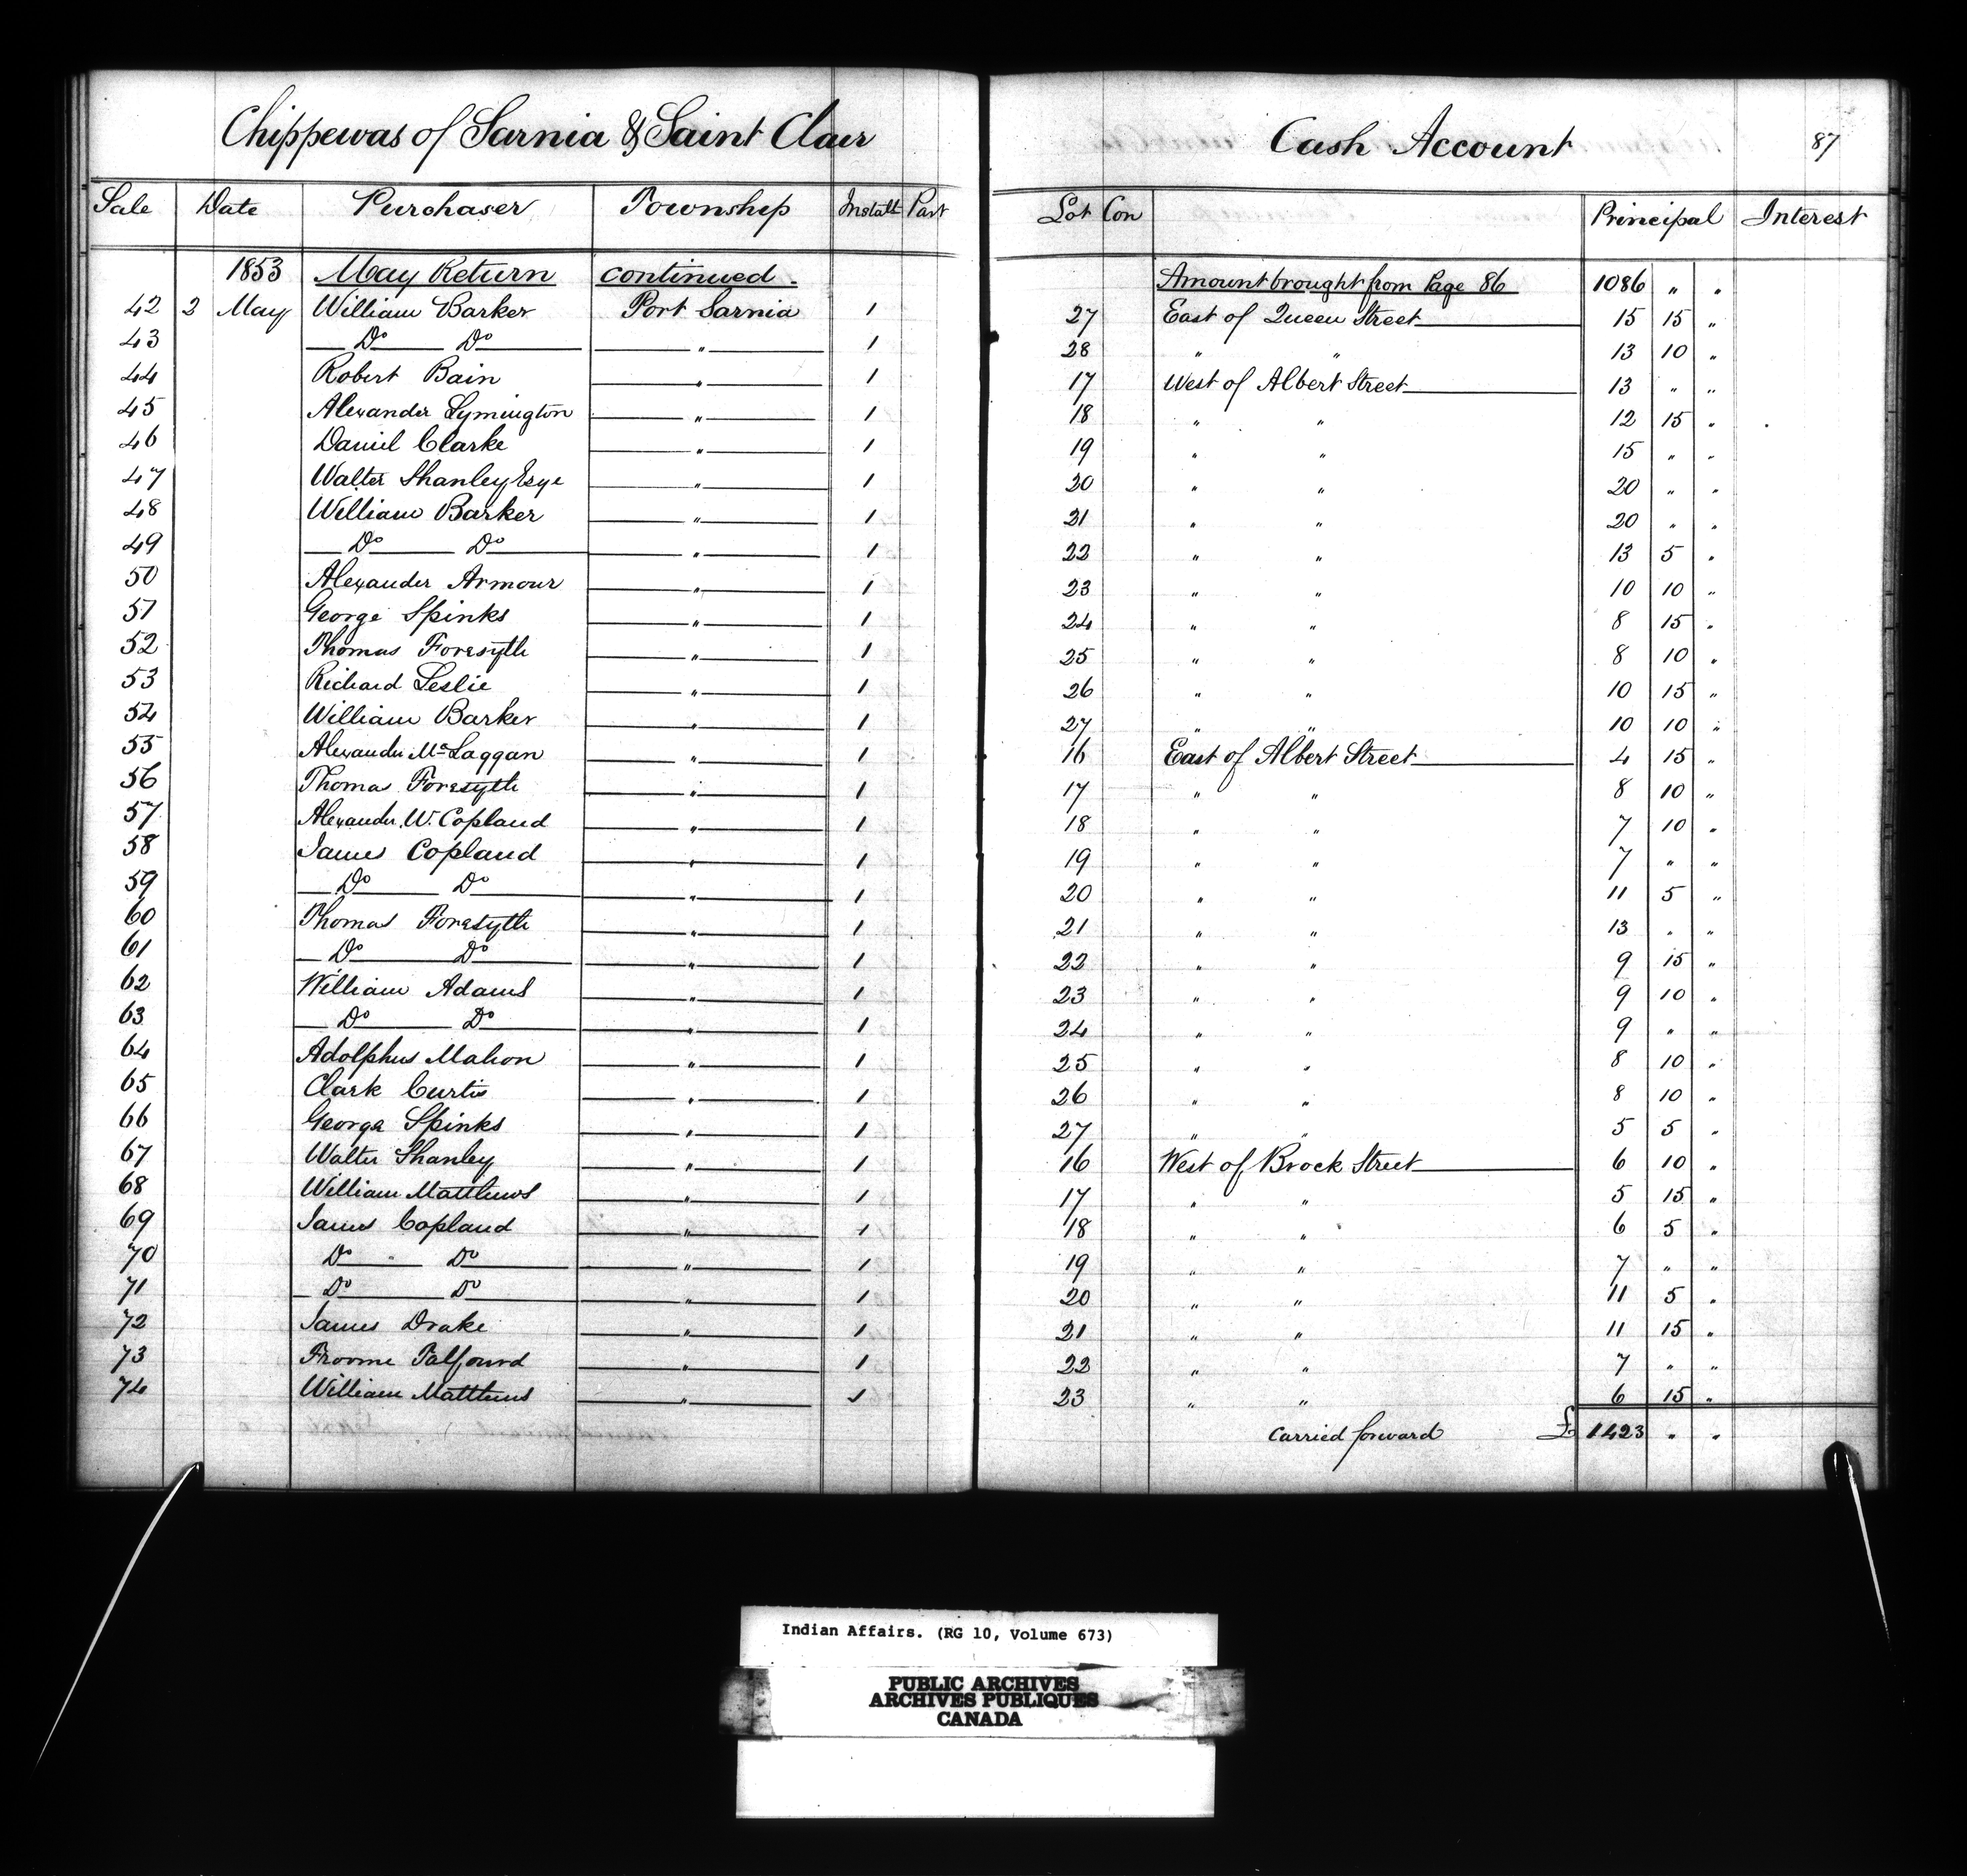 Chippewas of Sarnia & Saint Clair Cash Account 87
Sale Date Purchaser Township Instalt Part Lot Con Principal Interest
1853 May Return continued. Amount brought from Page 86 1086 " "
42 2 May William Barker Port Sarnia 1 27 East of Queen Street 15 15 "
43 Do Do " 1 28 " " 13 10 "
44 Robert Bain " 1 17 West of Albert Street 13 " "
45 Alexander Lymington " 1 18 " " 12 15 "
46 Daniel Clarke " 1 19 " " 15 " "
47 Walter Shanley Esqe " 1 20 " " 20 " "
48 William Barker " 1 21 " " 20 " "
49 Do Do " 1 22 " " 13 5 "
50 Alexander Armour " 1 23 " " 10 10 "
51 George Spinks " 1 24 " " 8 15 "
52 Thomas Foresyth " 1 25 " " 8 10 "
53 Richard Leslie " 1 26 " " 10 15 "
54 William Barker " 1 27 " " 10 10 "
55 Alexander McLaggan " 1 16 East of Albert Street 4 15 "
56 Thomas Foresyth " 1 17 " " 8 10 "
57 Alexander W. Copland " 1 18 " " 7 10 "
58 James Copland " 1 19 " " 7 " "
59 Do Do " 1 20 " " 11 5 "
60 Thomas Foresyth " 1 21 " " 13 " "
61 Do Do " 1 22 " " 9 15 "
62 William Adams " 1 23 " " 9 10 "
63 Do Do " 1 24 " " 9 " "
64 Adolphus Mahon " 1 25 " " 8 10 "
65 Clark Curtis " 1 26 " " 8 10 "
66 George Spinks " 1 27 " " 5 5 "
67 Walter Shanley " 1 16 West of Brock Street 6 10 "
68 William Matthews " 1 17 " " 5 15 "
69 James Copland " 1 18 " " 6 5 "
70 Do " Do " 1 19 " " 7 " "
71 Do Do " 1 20 " " 11 5 "
72 James Drake " 1 21 " " 11 15 "
73 Froome Talfourd " 1 22 " " 7 " "
74 William Matthews " 1 23 " " 6 15 "
Carried forward £ 1423 " "
Indian Affairs. (RG 10, Volume 673)
PUBLIC ARCHIVES
ARCHIVES PUBLIQUES
CANADA